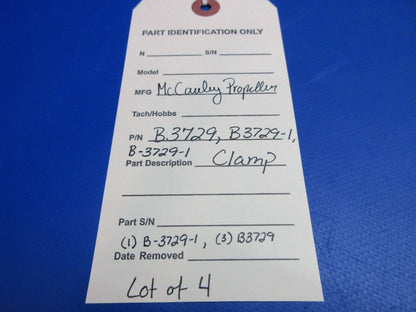 PART IDENTIFICATION ONLY
N S/N
Model
MFG McCauley Propeller
Tach/Hobbs
P/N B3729, B3729-1,
B-3729-1
Part Description Clamp
Part S/N
(1) B-3729-1, (3) B3729
Date Removed
Lot of 4